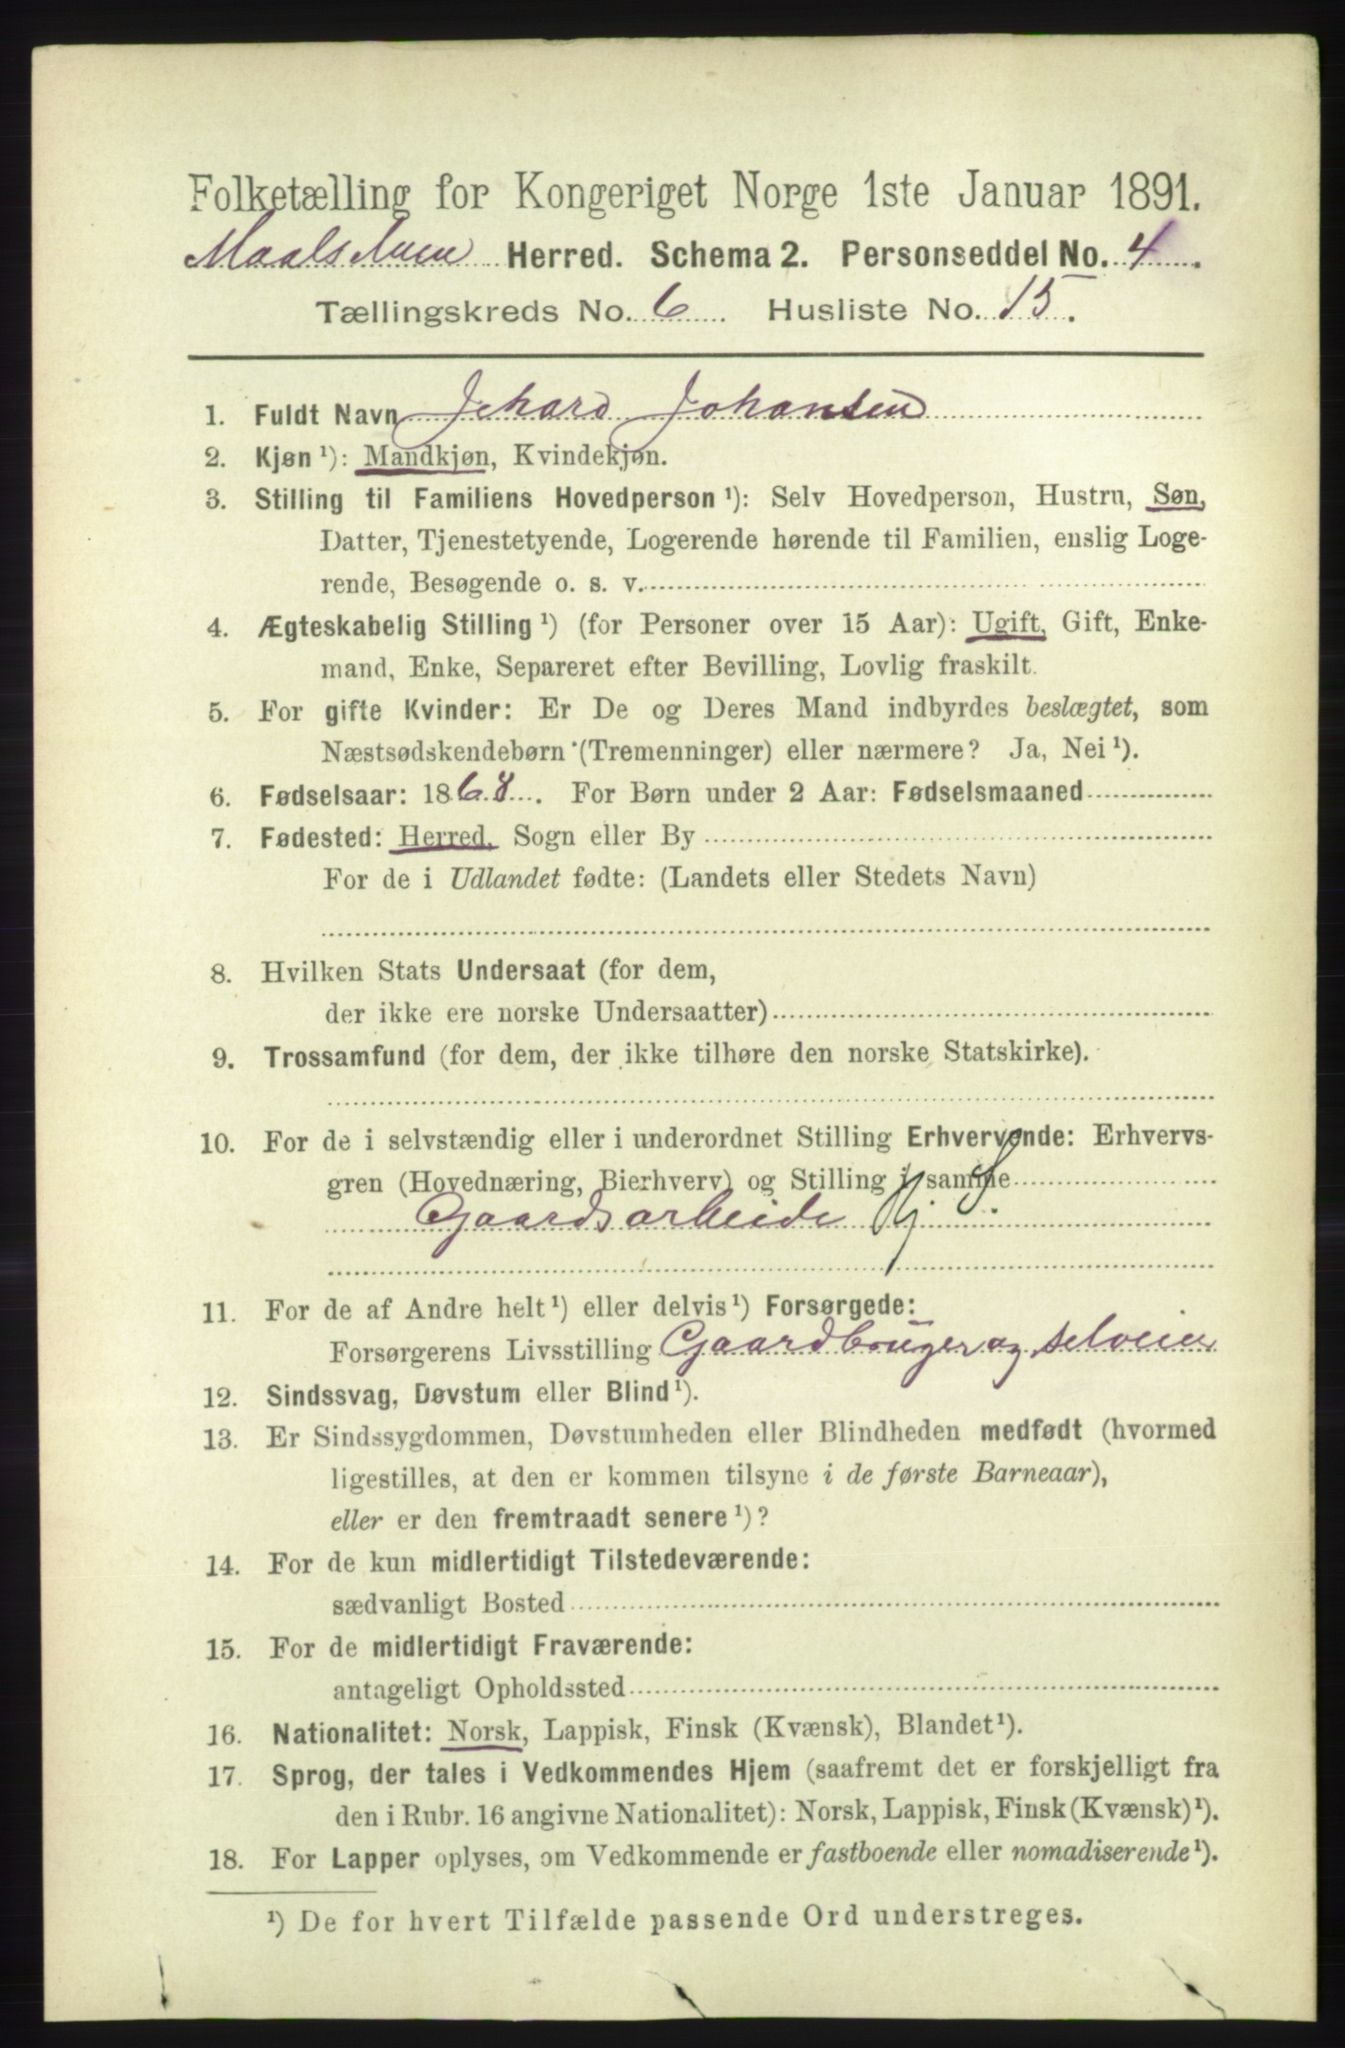 Folketælling for Kongeriget Norge 1ste Januar 1891.
Maalselven Herred. Schema 2. Personseddel No. 4.
Tællingskreds No. 6 Husliste No. 15.
1. Fuldt Navn Johansen
2. Kjøn ¹): Mandkjøn, Kvindekjøn.
3. Stilling til Familiens Hovedperson ¹): Selv Hovedperson, Hustru, Søn,
Datter, Tjenestetyende, Logerende hørende til Familien, enslig Loge-
rende, Besøgende o. s. v.
4. Ægteskabelig Stilling ¹) (for Personer over 15 Aar): Ugift, Gift, Enke-
mand, Enke, Separeret efter Bevilling, Lovlig fraskilt.
5. For gifte Kvinder: Er De og Deres Mand indbyrdes beslægtet, som
Næstsødskendebørn (Tremenninger) eller nærmere? Ja, Nei ¹).
6. Fødselsaar: 1868. For Børn under 2 Aar: Fødselsmaaned
7. Fødested: Herred, Sogn eller By
For de i Udlandet fødte: (Landets eller Stedets Navn)
8. Hvilken Stats Undersaat (for dem,
der ikke ere norske Undersaatter)
9. Trossamfund (for dem, der ikke tilhøre den norske Statskirke).
10. For de i selvstændig eller i underordnet Stilling Erhvervende: Erhvervs-
gren (Hovednæring, Bierhverv) og Stilling i samme
Gaardsarbeide Hj S.
11. For de af Andre helt ¹) eller delvis ¹) Forsørgede:
Forsørgerens Livsstilling Gaardbruger og selveier
12. Sindssvag, Døvstum eller Blind ¹).
13. Er Sindssygdommen, Døvstumheden eller Blindheden medfødt (hvormed
ligestilles, at den er kommen tilsyne i de første Barneaar),
eller er den fremtraadt senere ¹)?
14. For de kun midlertidigt Tilstedeværende:
sædvanligt Bosted
15. For de midlertidigt Fraværende:
antageligt Opholdssted
16. Nationalitet: Norsk, Lappisk, Finsk (Kvænsk), Blandet ¹).
17. Sprog, der tales i Vedkommendes Hjem (saafremt det er forskjelligt fra
den i Rubr. 16 angivne Nationalitet): Norsk, Lappisk, Finsk (Kvænsk) ¹).
18. For Lapper oplyses, om Vedkommende er fastboende eller nomadiserende ¹).
¹) De for hvert Tilfælde passende Ord understreges.